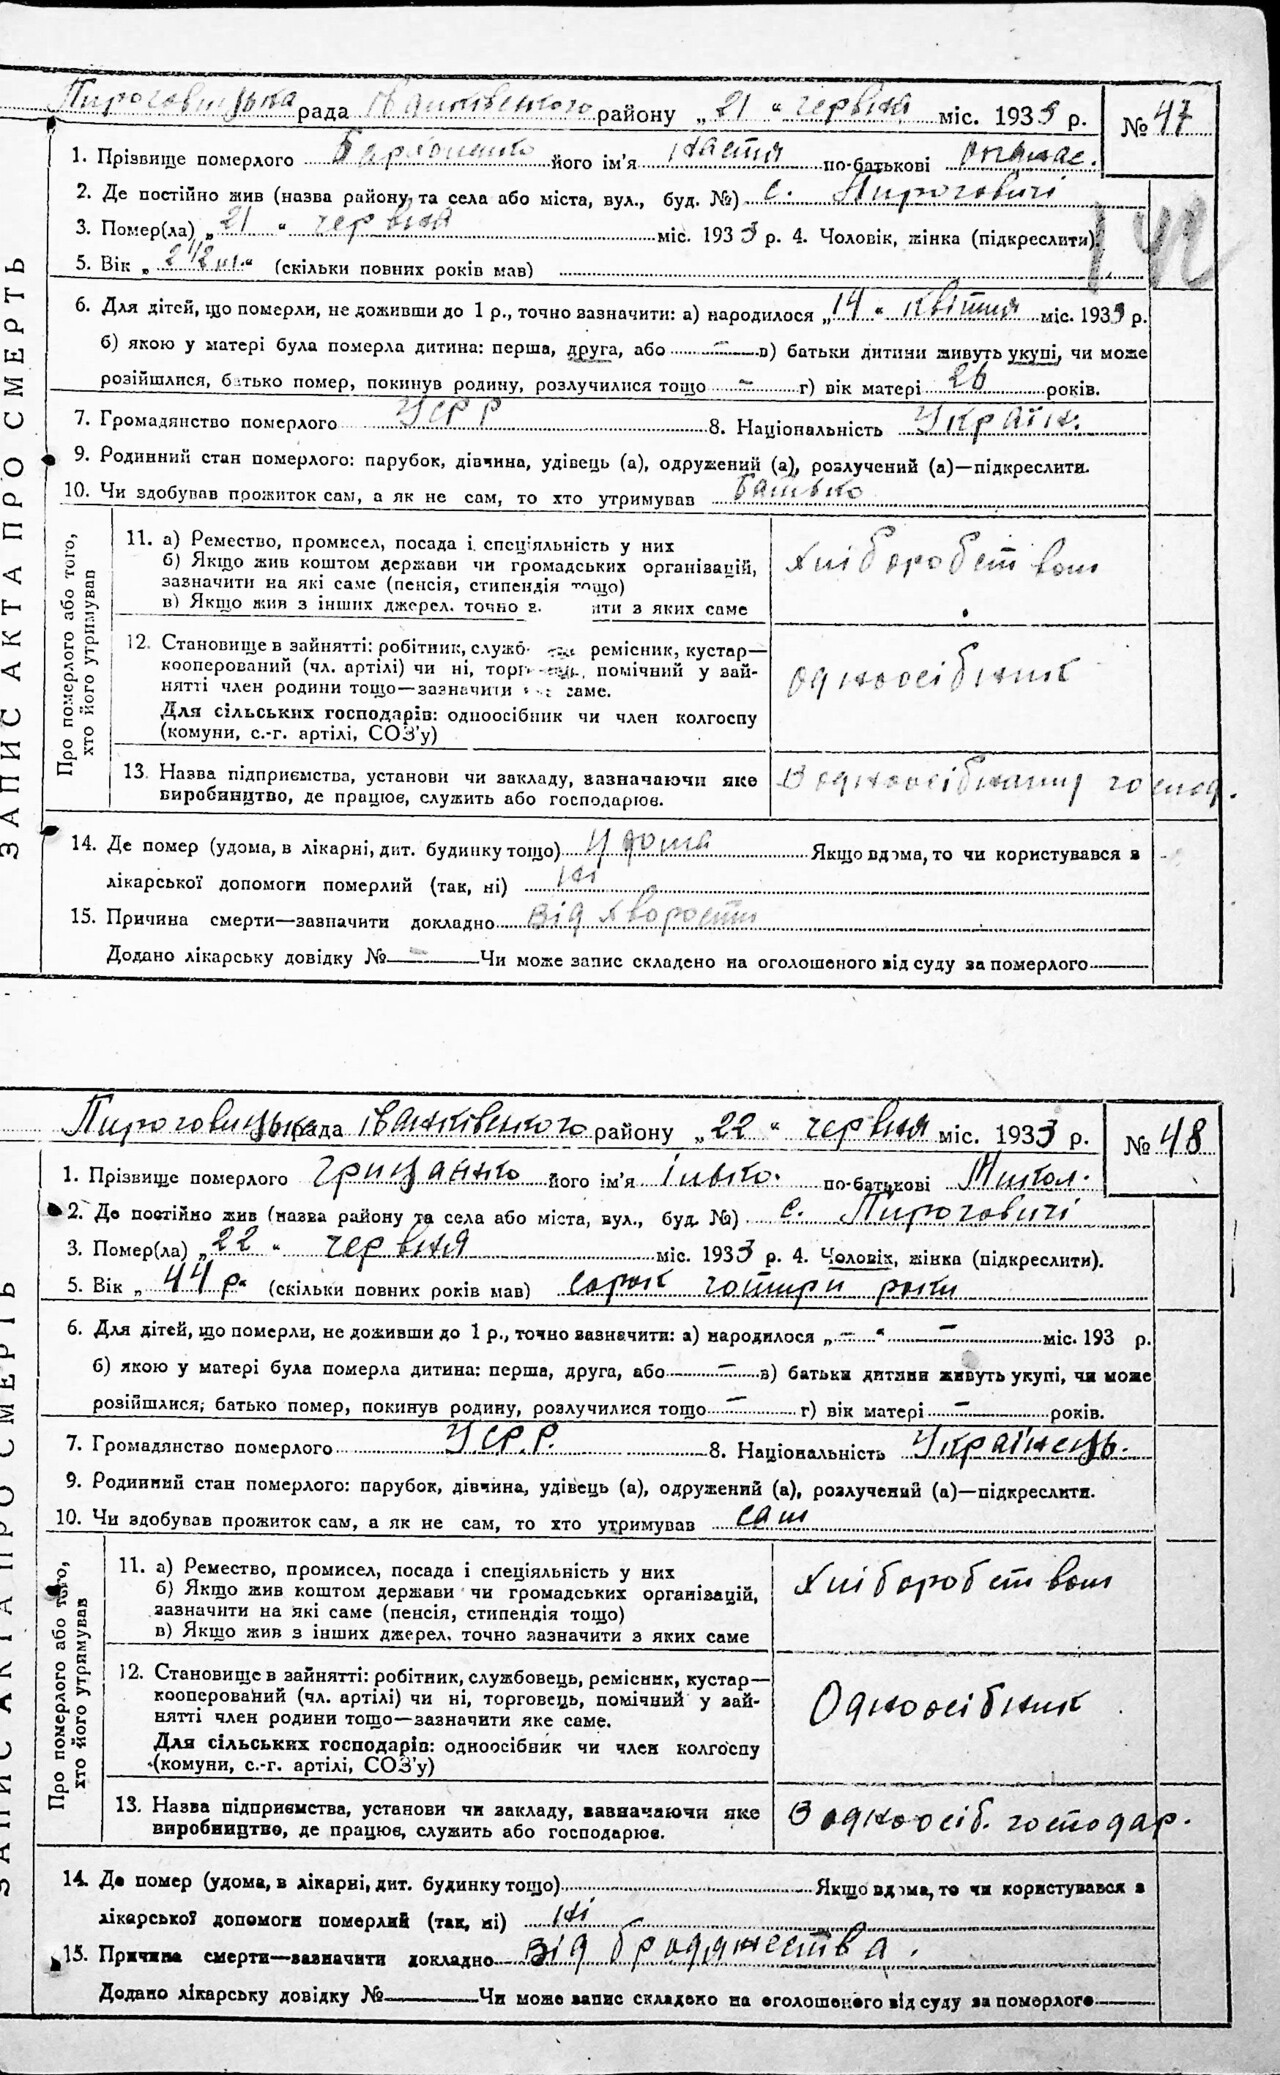 ЗАПИС АКТА ПРО СМЕРТЬ
Пироговицька рада Іванківського району „21“ червня міс. 1933 р. № 47
1. Прізвище померлого його ім'я Настя по-батькові Опанас.
2. Де постійно жив (назва району, та села або міста, вул., буд. №) с. Пироговичі
3. Помер(ла) „21“ червня міс. 1933 р. 4. Чоловік, жінка (підкреслити).
142
5. Вік „2 1/2 м.“ (скільки повних років мав)
6. Для дітей, що померли, не доживши до 1 р., точно зазначити: а) народилося „14“ квітня міс. 1933 р.
б) якою у матері була померла дитина: перша, друга, або — в) батьки дитини живуть укупі, чи може
розійшлися, батько помер, покинув родину, розлучилися тощо — г) вік матері 26 років.
7. Громадянство померлого УСРР 8. Національність Україн.
9. Родинний стан померлого: парубок, дівчина, удівець (а), одружений (а), розлучений (а)—підкреслити.
10. Чи здобував прожиток сам, а як не сам, то хто утримував батько
Про померлого або того, хто його утримував
11. а) Ремество, промисел, посада і спеціяльність у них
б) Якщо жив коштом держави чи громадських організацій,
зазначити на які саме (пенсія, стипендія тощо)
в) Якщо жив з інших джерел, точно з. ити з яких саме
Хліборобством
12. Становище в зайнятті: робітник, служб ремісник, кустар—
кооперований (чл. артілі) чи ні, торг помічний у зай-
нятті член родини тощо—зазначити саме.
Для сільських господарів: одноосібник чи член колгоспу
(комуни, с.-г. артілі, СОЗ'у)
одноосібник
13. Назва підприємства, установи чи закладу, зазначаючи яке
виробництво, де працює, служить або господарює.
В одноосібному господ.
14. Де помер (удома, в лікарні, дит. будинку тощо) У дома Якщо вдома, то чи користувався з
лікарської допомоги померлий (так, ні) Ні
15. Причина смерти—зазначити докладно Від хворости
Додано лікарську довідку №— Чи може запис складено на оголошеного від суду за померлого—
ЗАПИС АКТА ПРО СМЕРТЬ
Пироговицька рада Іванківського району „22“ червня міс. 1933 р. № 48
1. Прізвище померлого Грищенко його ім'я Ілько. по-батькові Микол.
2. Де постійно жив (назва району та села або міста, вул., буд. №) с. Пироговичі
3. Помер(ла) „22“ червня міс. 1933 р. 4. Чоловік, жінка (підкреслити).
5. Вік „44 р.“ (скільки повних років мав) сорок чотири роки
6. Для дітей, що померли, не доживши до 1 р., точно зазначити: а) народилося „—“ — міс. 193 р.
б) якою у матері була померла дитина: перша, друга, або — в) батьки дитини живуть укупі, чи може
розійшлися, батько помер, покинув родину, розлучилися тощо — г) вік матері — років.
7. Громадянство померлого УСР.Р. 8. Національність Українець.
9. Родинний стан померлого: парубок, дівчина, удівець (а), одружений (а), розлучений (а)—підкреслити.
10. Чи здобував прожиток сам, а як не сам, то хто утримував сам
Про померлого або того, хто його утримував
11. а) Ремество, промисел, посада і спеціяльність у них
б) Якщо жив коштом держави чи громадських організацій,
зазначити на які саме (пенсія, стипендія тощо)
в) Якщо жив з інших джерел, точно зазначити з яких саме
Хліборобством
12. Становище в зайнятті: робітник, службовець, ремісник, кустар—
кооперований (чл. артілі) чи ні, торговець, помічний у зай-
нятті член родини тощо—зазначити яке саме.
Для сільських господарів: одноосібник чи член колгоспу
(комуни, с.-г. артілі, СОЗ'у)
Одноосібник
13. Назва підприємства, установи чи закладу, зазначаючи яке
виробництво, де працює, служить або господарює.
В одноосіб. господар.
14. Де помер (удома, в лікарні, дит. будинку тощо) Якщо вдома, то чи користувався з
лікарської допомоги померлий (так, ні) Ні
15. Причина смерти—зазначити докладно Від бродяжества.
Додано лікарську довідку №— Чи може запис складено на оголошеного від суду за померлого—